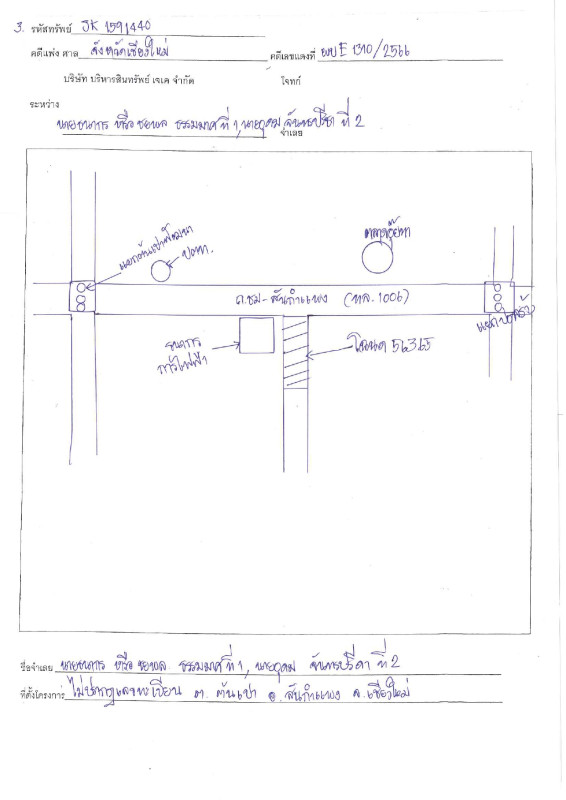 3. รหัสทรัพย์ JK 1591440
คดีแพ่ง ศาล จังหวัดเชียงใหม่ คดีเลขแดงที่ ผบE 1310/2566
บริษัท บริหารสินทรัพย์ เจเค จำกัด โจทก์
ระหว่าง
นายธนากร หรือ ชยพล ธรรมมาศ ที่ 1, นายอุดม จันทรปรีดา ที่ 2
จำเลย
แยกต้นเปาพัฒนา
ปตท.
ถ.ชม-สันกำแพง (ทล.1006)
แยกบ่อสร้าง
ธนาคาร
โฉนด 56365
ชื่อจำเลย นายธนากร หรือ ชยพล ธรรมมาศ ที่ 1, นายอุดม จันทรปรีดา ที่ 2
ที่ตั้งโครงการ ไม่ปรากฏเลขทะเบียน ต. ต้นเปา อ. สันกำแพง จ. เชียงใหม่